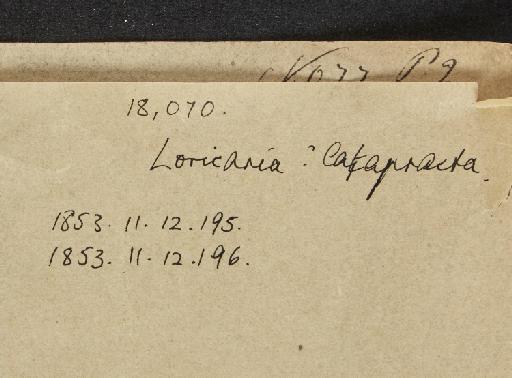 18,070.
Loricaria ? Catapracta.
1853. 11. 12. 195.
1853. 11. 12. 196.